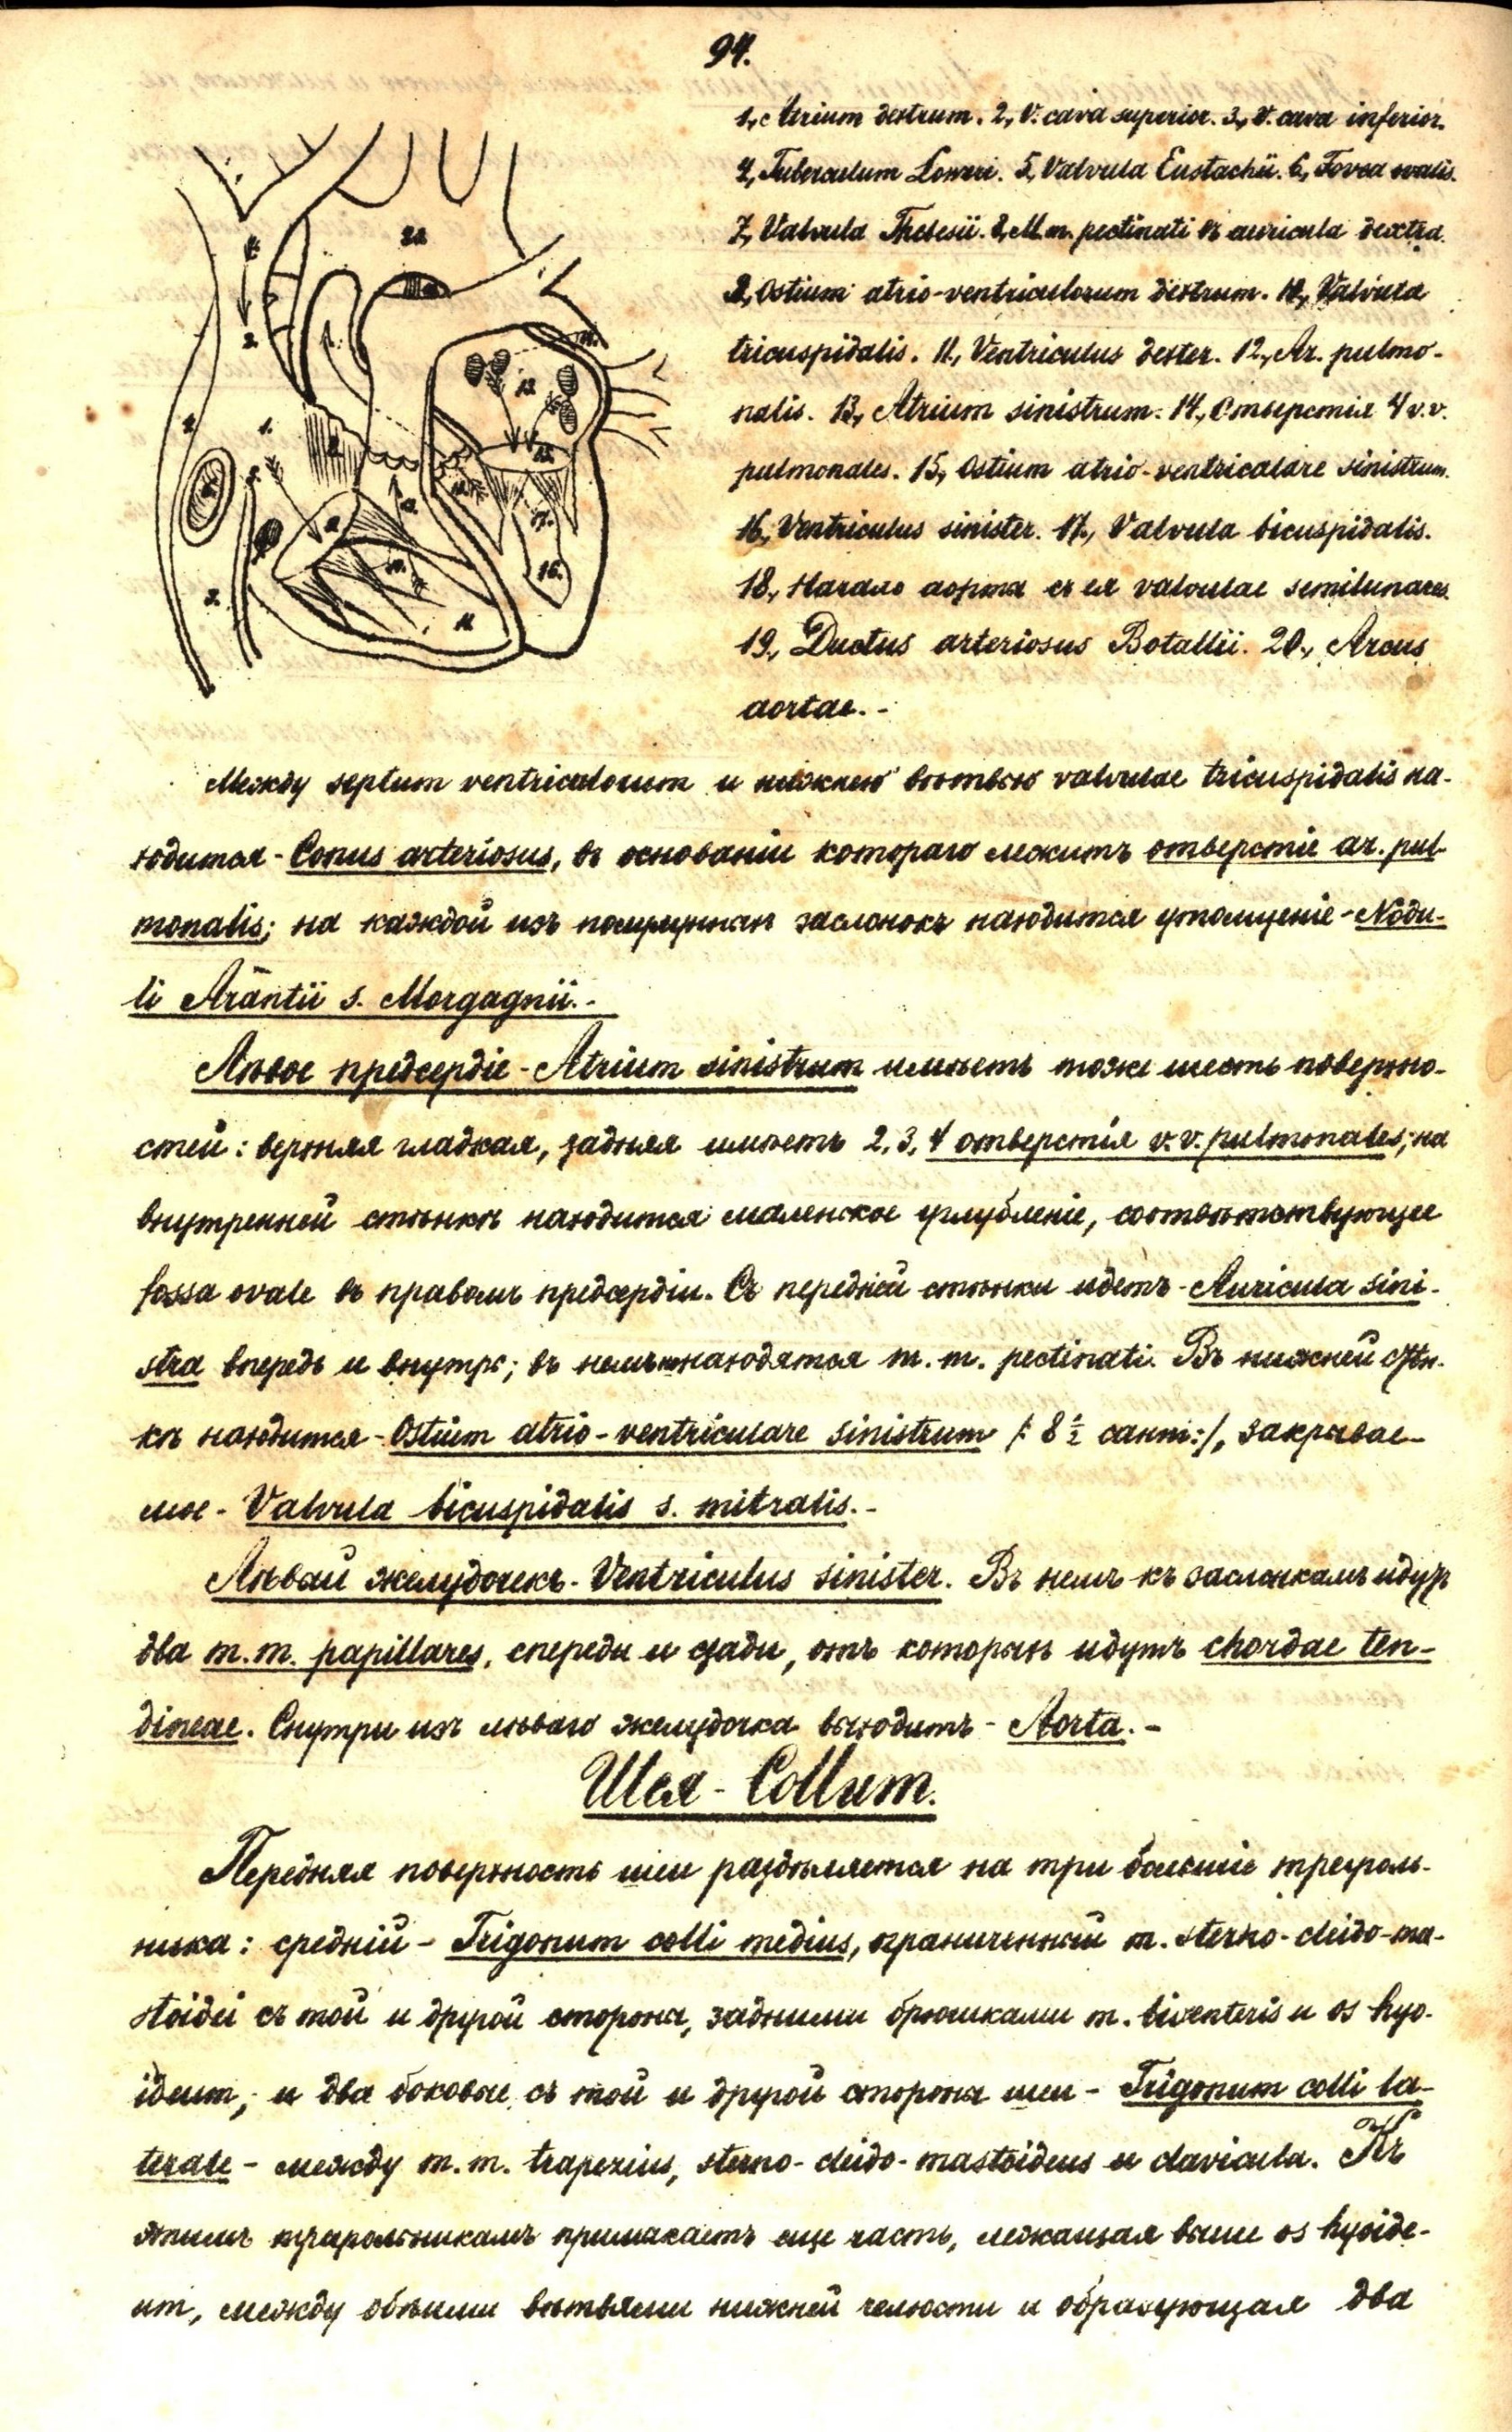 94.
1, Atrium dextrum. 2, V. cava superior. 3, V. cava inferior.
4, Tuberculum Loweri. 5, Valvula Eustachii. 6, Fovea ovalis.
7, Valvula Thebesii. 8, M.m. pectinati въ auricula dextra.
9, Ostium atrio-ventriculorum dextrum. 10, Valvula
tricuspidalis. 11, Ventriculus dexter. 12, Ar. pulmo-
nalis. 13, Atrium sinistrum. 14, Отверстія 4 v.v.
pulmonales. 15, Ostium atrio-ventriculare sinistrum.
16, Ventriculus sinister. 17, Valvula bicuspidalis.
18, Начало аорты съ ея valvulae semilunares.
19, Ductus arteriosus Botallii. 20, Arcus
aortae. -
Между septum ventriculorum и нижнею вѣтвью valvulae tricuspidalis на-
ходится - Conus arteriosus, въ основаніи котораго лежитъ отверстіе ar. pul-
monalis; на каждой изъ полулунныхъ заслонокъ находится утолщеніе - Nodu-
li Arantii s. Morgagnii. -
Лѣвое предсердіе - Atrium sinistrum имѣетъ тоже шесть поверхно-
стей: верхняя гладкая, задняя имѣетъ 2, 3, 4 отверстія v.v. pulmonales; на
внутренней стѣнкѣ находится маленькое углубленіе, соотвѣтствующее
fossa ovale въ правомъ предсердіи. Съ передней стѣнки идетъ - Auricula sini-
stra впередъ и внутрь; въ немъ находятся m. m. pectinati. Въ нижней стѣн-
кѣ находится - Ostium atrio-ventriculare sinistrum /: 8 ½ сант:/, закрывае-
мое - Valvula bicuspidalis s. mitralis. -
Лѣвый желудочекъ - Ventriculus sinister. Въ немъ къ заслонкамъ идутъ
два m. m. papillares, спереди и сзади, отъ которыхъ идутъ chordae ten-
dineae. Снутри изъ лѣваго желудочка выходитъ - Aorta. -
Шея - Collum.
Передняя поверхность шеи раздѣляется на три большіе треуголь-
ника: средній - Trigonum colli medius, ограниченный m. sterno-cleido-ma-
stoidei съ той и другой стороны, задними брюшками m. biventeris и os hyo-
ideum, и два боковые съ той и другой стороны шеи - Trigonum colli la-
terale - между m. m. trapezius, sterno-cleido-mastoideus и clavicula. Къ
этимъ треугольникамъ примыкаетъ еще часть, лежащая выше os hyoide-
um, между обѣими вѣтвями нижней челюсти и образующая два